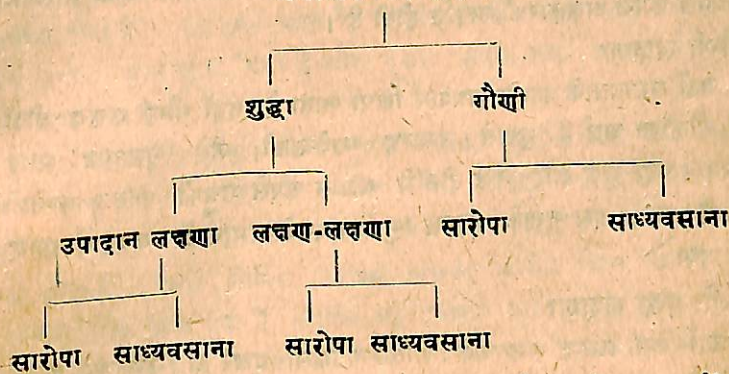 शुद्धा गौणी
उपादान लक्षणा लक्षण-लक्षणा सारोपा साध्यवसाना
सारोपा साध्यवसाना सारोपा साध्यवसाना